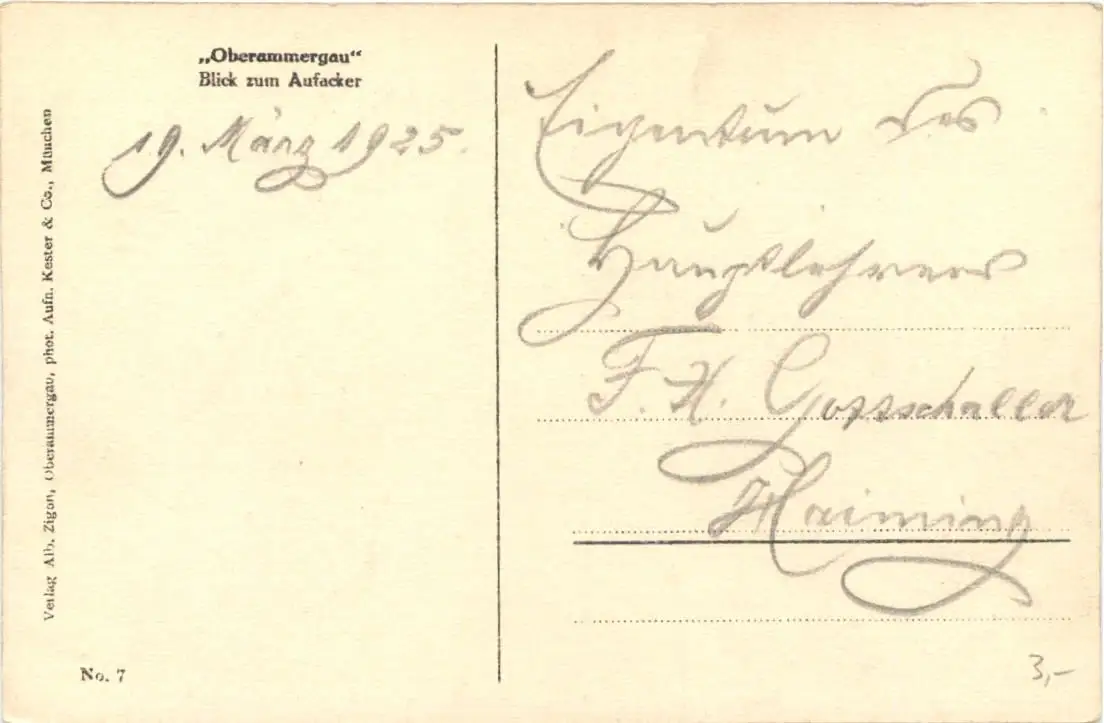 „Oberammergau“
Blick zum Aufacker
19. März 1925.
Verlag Alb. Zigon, Oberammergau, phot. Aufn. Kester & Co., München
No. 7
Eigentum des
Hauptlehrers
F. X.
Haiming
3,-